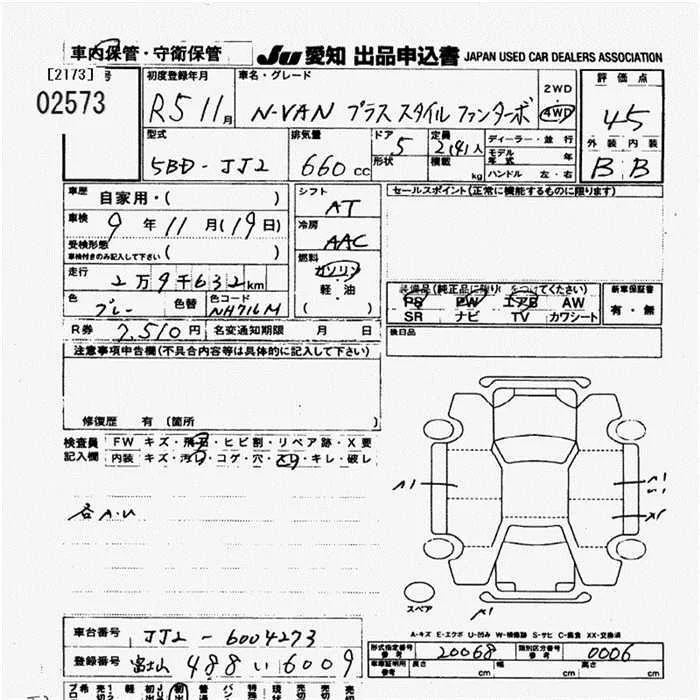 車内保管・守衛保管
JU 愛知 出品申込書 JAPAN USED CAR DEALERS ASSOCIATION
[2173]
号
02573
初度登録年月
R5 11月
車名・グレード
N-VAN プラス スタイル ファンターボ
2WD
4WD
評価点
4.5
外装 内装
B B
型式
5BD-JJ2
排気量
660cc
ドア
5
形状
定員
2(4)人
積載
kg
ディーラー・並行
モデル年式 年
ハンドル 左・右
車歴
自家用・( )
車検
9年11月(19日)
受検形態
車検付きのみ記入して下さい ( )
走行
2万9千632km
色
グレー
色替
色コード
NH716M
R券 7,510円 名変通知期限 月 日
シフト
AT
冷房
AAC
燃料
ガソリン
・
軽・油
( )
セールスポイント(正常に機能するものに限ります)
装備品(純正品に限り をつけてください)
PS PW エアB AW
SR ナビ TV カワシート
新車保証書
有・無
検目品
注意事項申告欄(不具合内容等は具体的に記入して下さい)
修復歴 有 〔箇所 〕
検査員 FW キズ・飛石・ヒビ割・リペア跡・X要
記入欄 内装 キズ・汚れ・コゲ・穴・スレ・キレ・破レ
各A.U
A1
スペア
A-キズ E-エクボ U-凹み W-補修跡 S-サビ C-腐食 XX-交換済
車台番号 JJ2-6004273
登録番号 富士山 488 い 6009
形式指定番号
参考
20068
類別区分番号
参考
0006
車庫証明用
参考
長さ cm 幅 cm 高さ cm